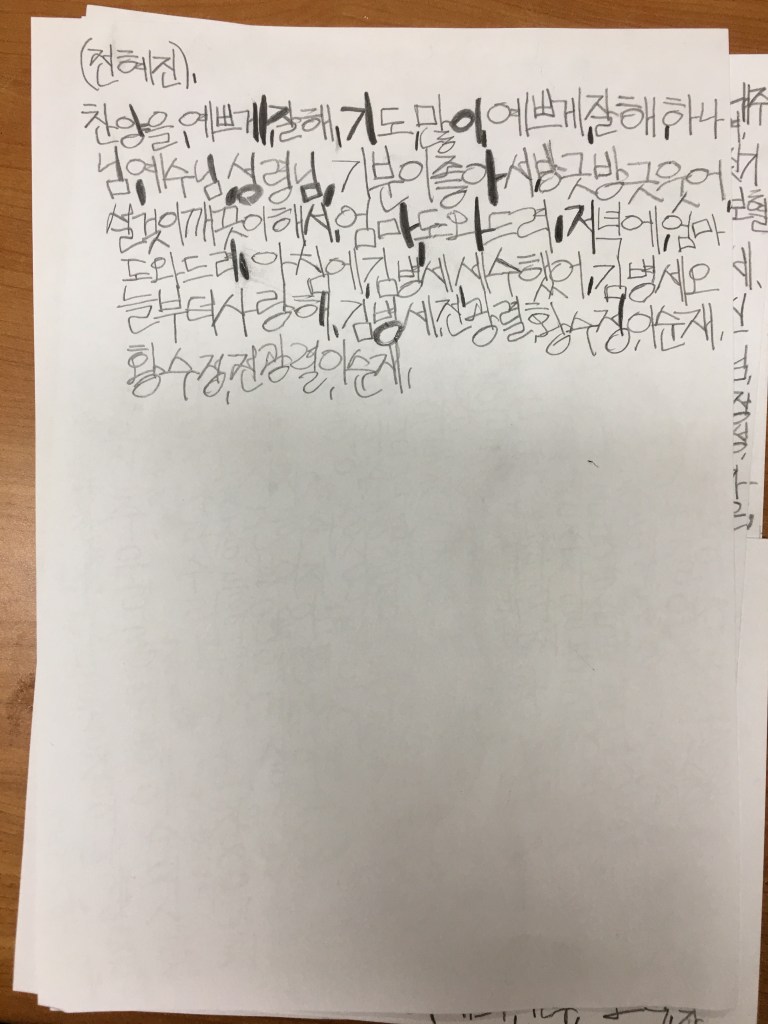 (전혜진).
찬양을,예쁘게,잘해,기도,많이,예쁘게,잘해,하나
님,예수님,성령님,기분이좋아서,방긋방긋웃어,
설겆이깨끗이해서,엄마,도와드려,저녁에,엄마
도와드려,아침에,김병세,세수했어,김병세오
늘부터사랑해,김병세,전광렬,황수정,이순재,
황수정,전광렬,이순재,